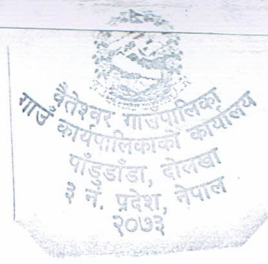 वैतेश्वर गाउँपालिका
गाउँ कार्यपालिकाको कार्यालय
पाँडुडाँडा, दोलखा
३ नं. प्रदेश, नेपाल
२०७३